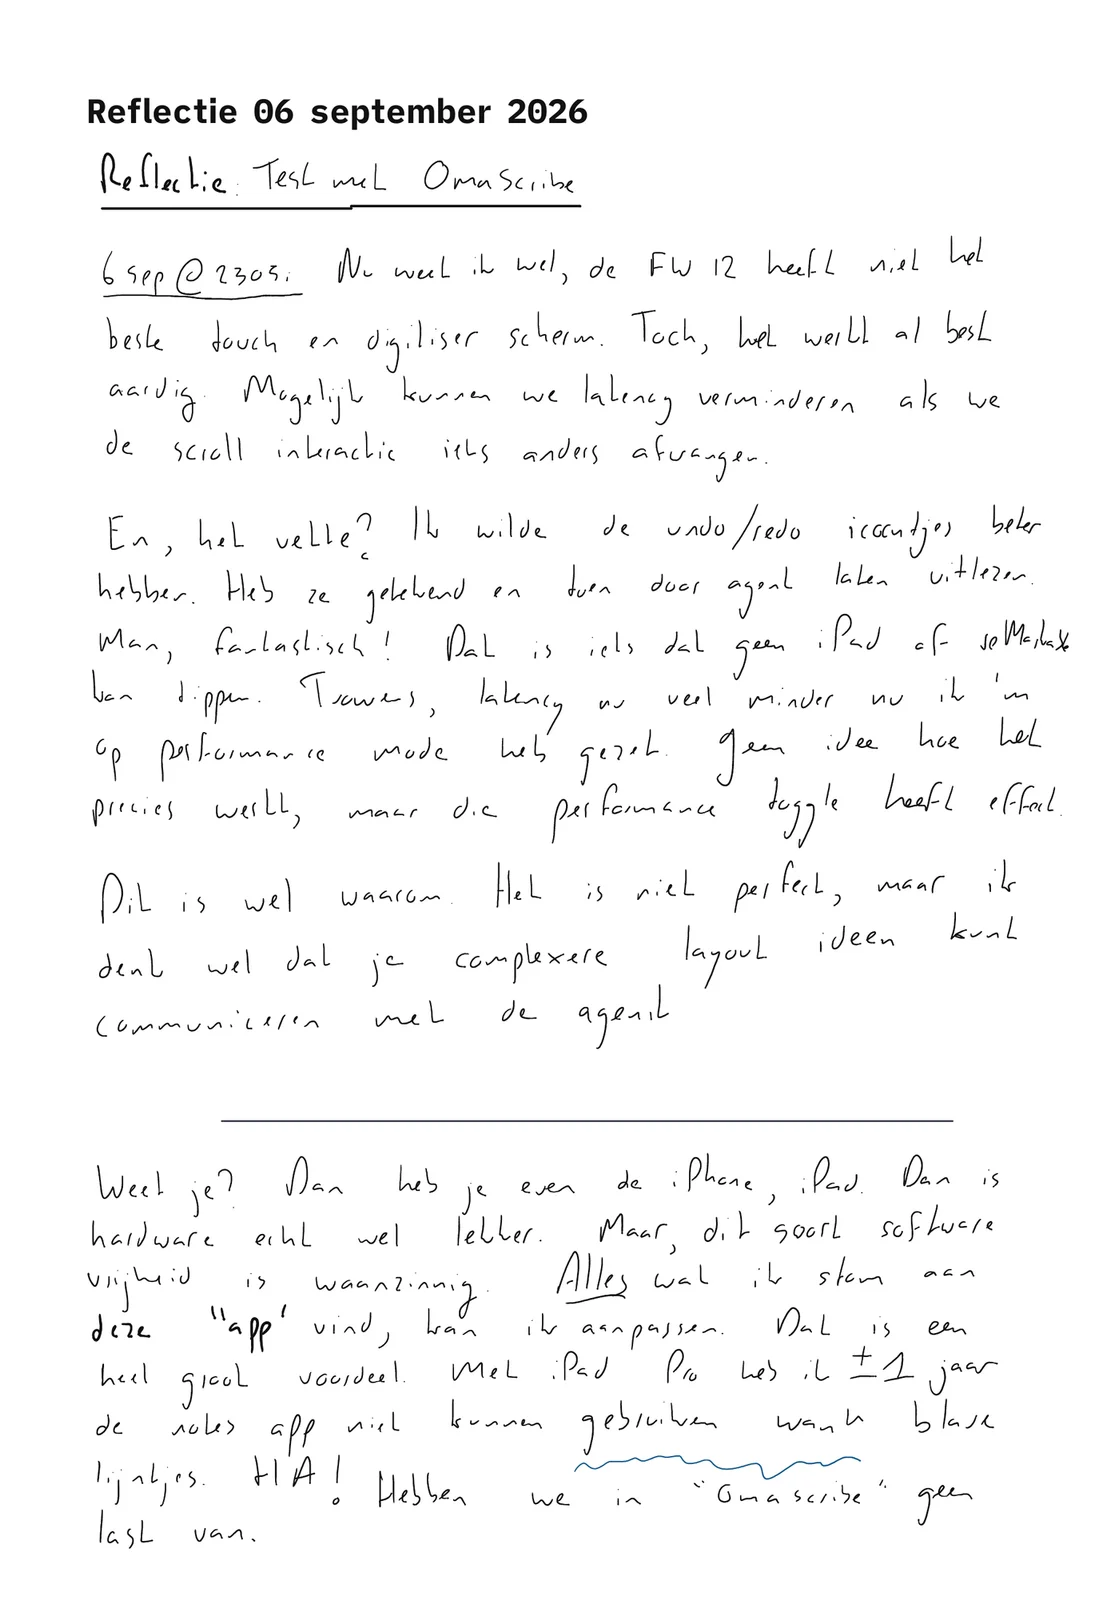 Reflectie 06 september 2026
Reflectie: Test met OmaScribe
6 sep @ 2305: Nu weet ik wel, de FW 12 heeft niet het
beste touch en digitiser scherm. Toch, het werkt al best
aardig. Mogelijk kunnen we latency verminderen als we
de scroll interactie iets anders afvangen.
En, het vette? Ik wilde de undo/redo icoontjes beter
hebben. Heb ze getekend en toen door agent laten uitlezen.
Man, fantastisch! Dat is iets dat geen iPad of reMarkable
kan tippen. Trouwens, latency nu veel minder nu ik 'm
op performance mode heb gezet. Geen idee hoe het
precies werkt, maar die performance toggle heeft effect.
Dit is wel waarom. Het is niet perfect, maar ik
denk wel dat je complexere layout ideen kunt
communiceren met de agent
Weet je? Dan heb je even de iPhone, iPad. Dan is
hardware echt wel lekker. Maar, dit soort software
vrijheid is waanzinnig. Alles wat ik stom aan
deze "app" vind, kan ik aanpassen. Dat is een
heel groot voordeel. Met iPad Pro heb ik ±1 jaar
de notes app niet kunnen gebruiken want blauwe
lijntjes. HA! Hebben we in "Omascribe" geen
last van.